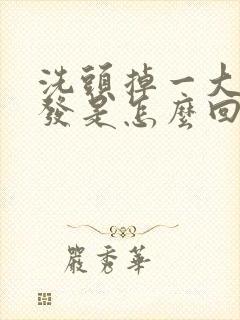 洗頭掉一大
發是怎麼回
嚴秀華